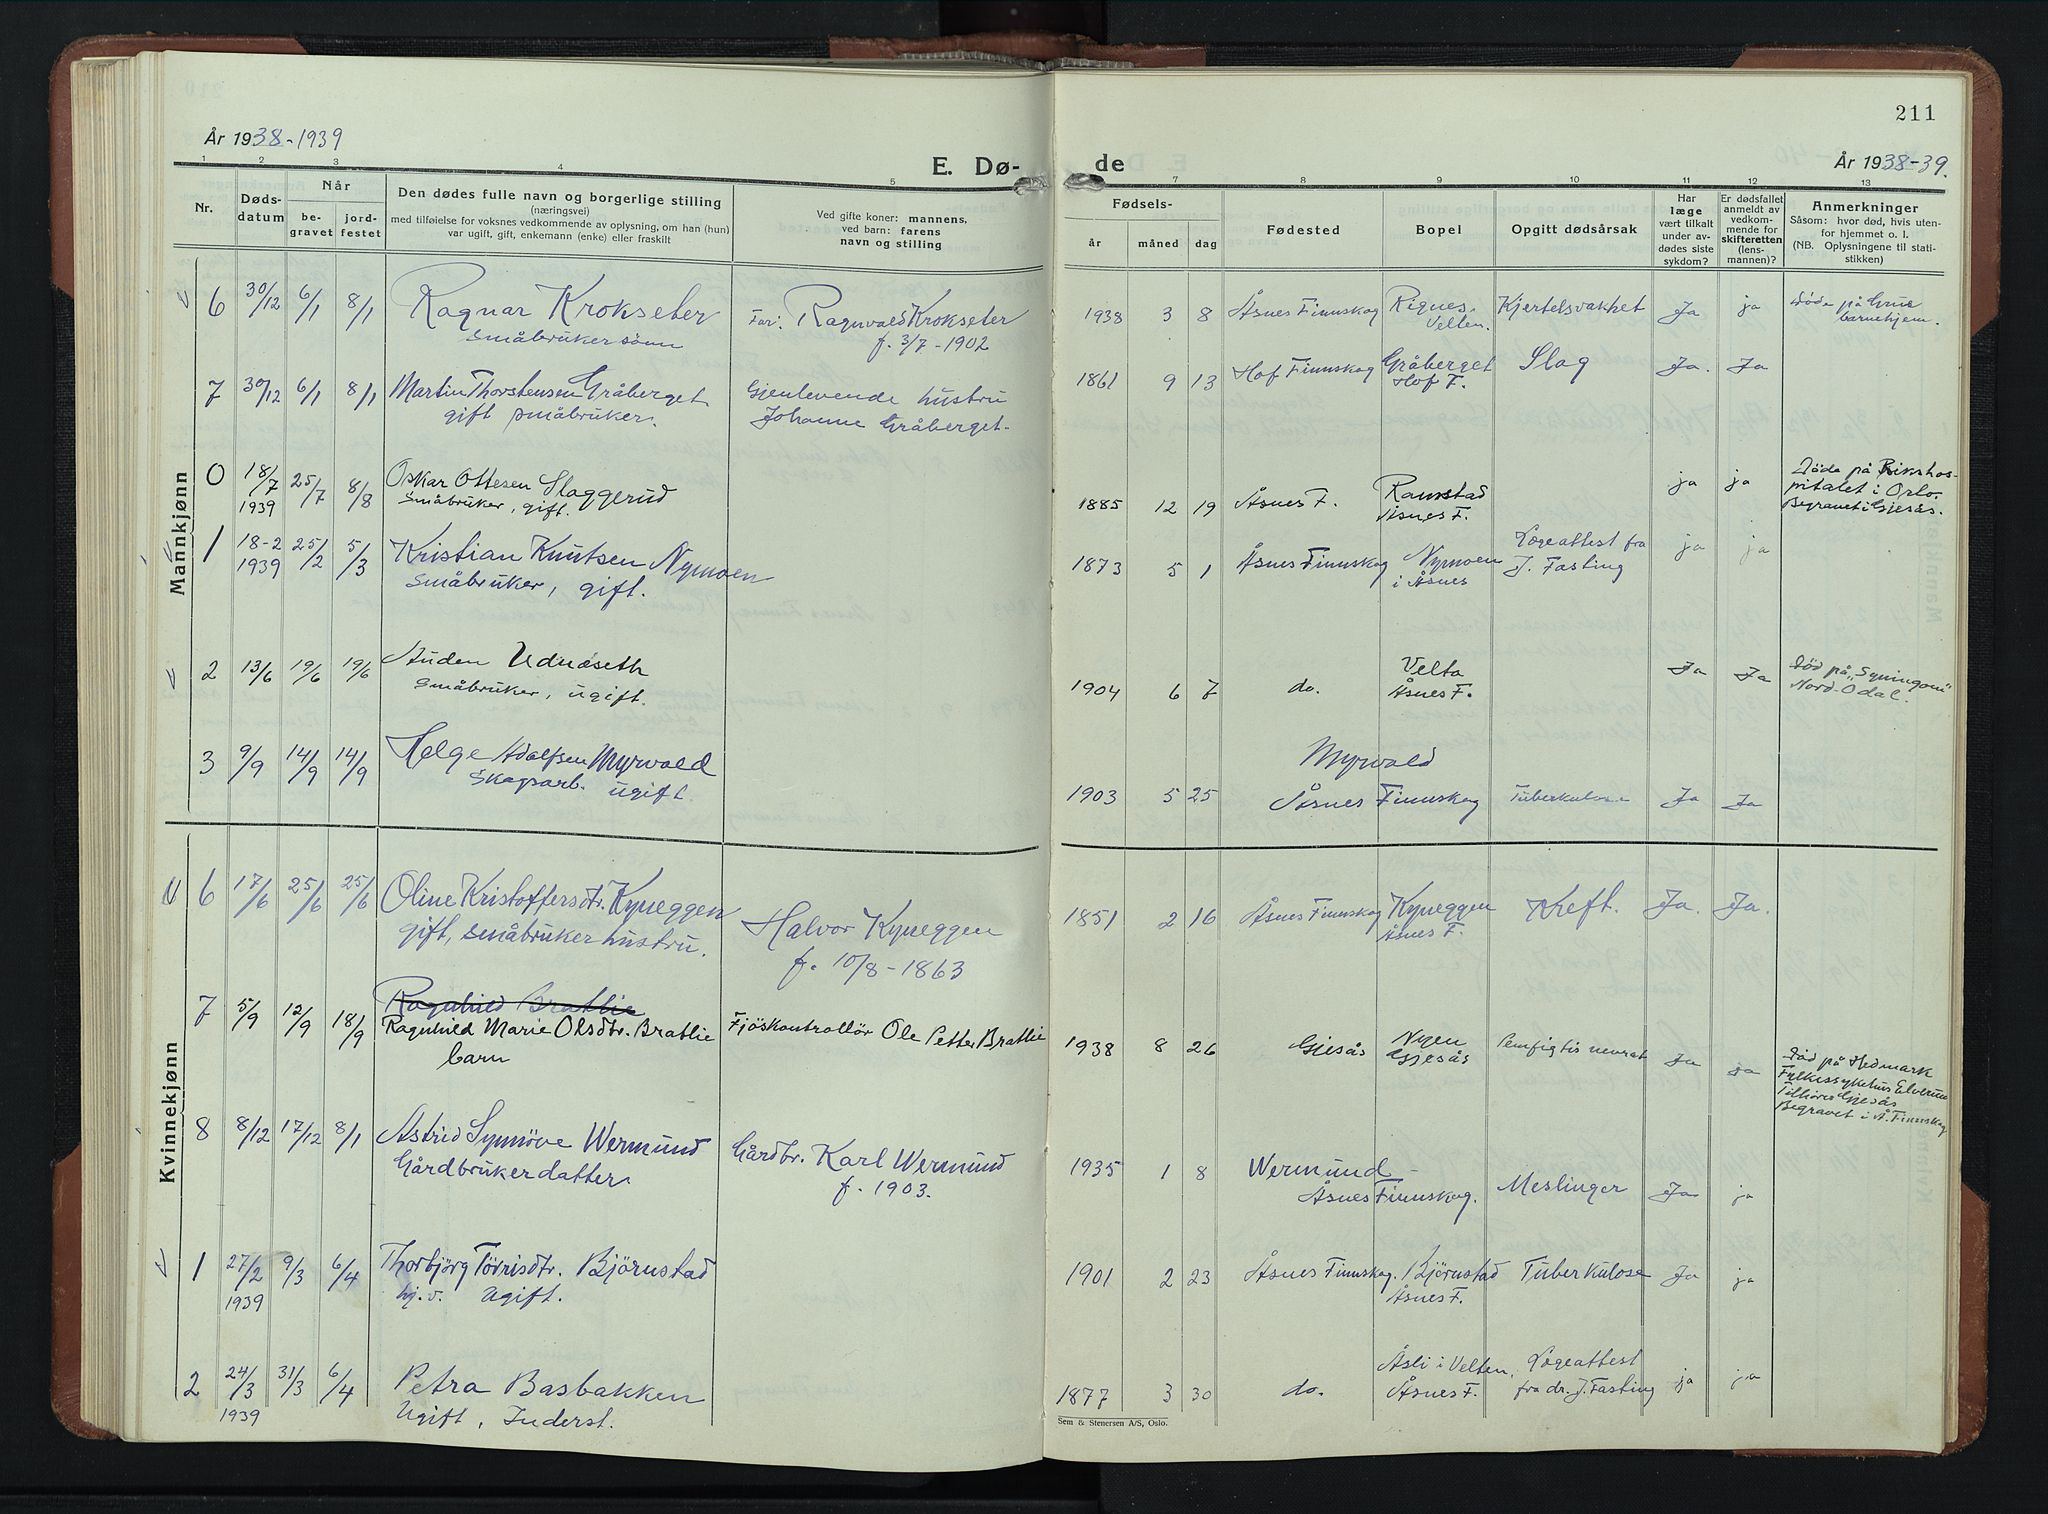 211
År 1938-1939
E. Dø-
de
År 1938-39.
1 2 3 4 5 7 8 9 10 11 12 13
Nr.
Døds-
datum
Når
be-
gravet
jord-
festet
Den dødes fulle navn og borgerlige stilling
(næringsvei)
med tilføielse for voksnes vedkommende av oplysning, om han (hun)
var ugift, gift, enkemann (enke) eller fraskilt
Ved gifte koner: mannens,
ved barn: farens
navn og stilling
Fødsels-
år måned dag
Fødested
Bopel
Opgitt dødsårsak
Har
læge
vært tilkalt
under av-
dødes siste
sykdom?
Er dødsfallet
anmeldt av
vedkom-
mende for
skifteretten
(lens-
mannen)?
Anmerkninger
Såsom: hvor død, hvis uten-
for hjemmet o. l.
(NB. Oplysningene til stati-
stikken)
Mannkjønn
6 30/12 6/1 8/1 Ragnar Krokseter Far: Ragnvald Krokseter 1938 3 8 Åsnes Finnskog Rignes, Kjertelsvakhet Ja ja Döde på Grue
småbrukersönn f. 3/7-1902 Velten. barnehjem.
7 30/12 6/1 8/1 Martin Thorstensen Gråberget Gjenlevende hustru 1861 9 13 Hof Finnskog Gråberget Slag Ja. Ja
gift småbruker. Johanne Gråberget. Hof F.
0 18/7 25/7 8/8 Oskar Ottesen Slaggerud 1885 12 19 Åsnes F. Ramstad ja ja Döde på Rikshos-
1939 småbruker, gift. Åsnes F. pitalet i Oslo.
Begravet i Gjesås.
1 18-2 25/2 5/3 Kristian Knutsen Nymoen 1873 5 1 Åsnes Finnskog Nymoen Lægeattest fra ja ja
1939 småbruker, gift. i Åsnes J. Fasting
2 13/6 19/6 19/6 Auden Udnæseth 1904 6 7 do. Velta Ja Ja Död på
småbruker, ugift. Åsnes F. Nord-Odal.
3 9/9 14/9 14/9 Helge Adolfsen Myrvold Myrvold
Skogsarb. ugift 1903 5 25 Åsnes Finnskog Tuberkulose Ja Ja
Kvinnekjønn
6 17/6 25/6 25/6 Oline Kristoffersdtr. Kyneggen Halvor Kyneggen 1851 2 16 Åsnes Finnskog Kyneggen Kreft. Ja. Ja.
gift, småbrukerhustru. f. 10/8-1863 Åsnes F.
Ragnhild Bratlie
7 5/9 12/9 18/9 Ragnhild Marie Olsdtr. Bratlie Fjöskontrollör Ole Petter Bratlie 1938 8 26 Gjesås Nyen Ja ja Död på Hedmark
barn Gjesås Fylkessykehus Elverum
Tilhörer Gjesås
Begravet i Å. Finnskog
8 8/12 17/12 8/1 Astrid Synnöve Wermund Gårdbr. Karl Wermund 1935 1 8 Wermund - Meslinger Ja ja
Gårdbrukerdatter f. 1903. Åsnes Finnskog.
1 27/2 9/3 6/4 Thorbjörg Torrisdtr. Björnstad 1901 2 23 Åsnes Finnskog. Björnstad Tuberkulose Ja ja
1939 hj.v. Ugift. Åsnes F.
2 24/3 31/3 6/4 Petra Basbakken 1877 3 30 do. Åsli i Velten, Lægeattest ja ja
1939 Ugift, Inderst. Åsnes F. fra dr. J. Fasting
Sem & Stenersen A/S, Oslo.